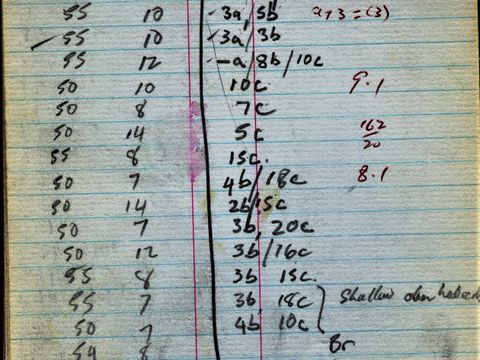 55 10 3a, 5b a, 3 = (3)
55 10 3a/3b
55 12 -a/8b/10c
50 10 10c 9.1
50 8 7c
50 14 5c 162/20
55 8 15c.
50 7 4b/18c 8.1
50 14 2b/15c
50 7 3b, 20c
50 12 3b/16c
55 8 3b 15c.
55 7 3b 18c Shallow
50 7 4b 10c
Br